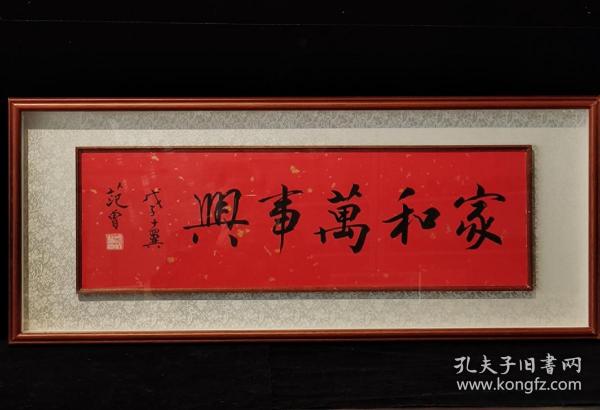 家和萬事興
戊子十翼
范曾
孔夫子旧书网
www.kongfz.com